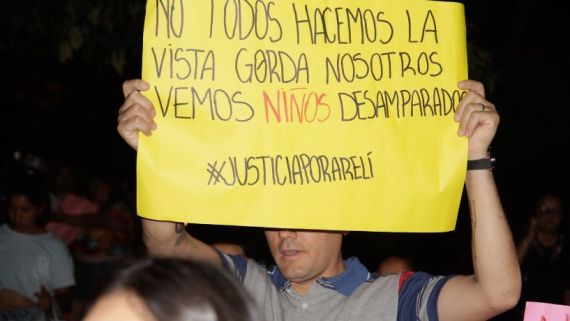 NO TODOS HACEMOS LA
VISTA GORDA NOSOTROS
VEMOS NIÑOS DESAMPARADOS
#JUSTICIAPORARELÍ
N